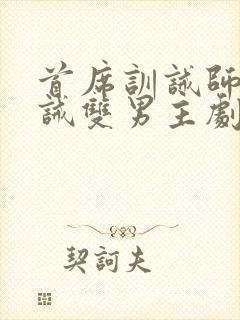 首席訓誡師
誡雙男主劇
契訶夫